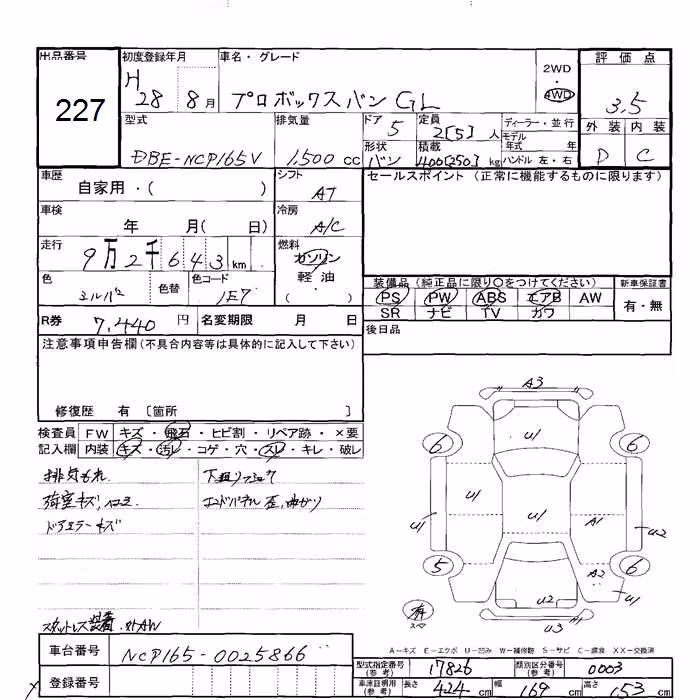 出品番号 初度登録年月 車名・グレード 2WD 評価点
227 H 28 8月 プロボックスバン GL ・ 4WD 3.5
型式 排気量 ドア 5 定員 2[5]人 ディーラー・並行 外装 内装
DBE-NCP165V 1,500 cc 形状 バン 積載 400[250]kg モデル年式 年 D C
ハンドル 左・右
車歴 自家用・( ) シフト AT セールスポイント (正常に機能するものに限ります)
車検 年 月( 日) 冷房 A/C
走行 9万2千643km 燃料 ガソリン
色 シルバー 色替 色コード 1E7 軽・油 ( ・ )
装備品 (純正品に限り○をつけてください) 新車保証書
PS PW ABS エアB AW 有・無
SR ナビ TV カワ
R券 7,440円 名変期限 月 日 後日品
注意事項申告欄(不具合内容等は具体的に記入して下さい)
修復歴 有 [箇所 ]
検査員 FW キズ・飛石・ヒビ割・リペア跡・×要
記入欄 内装 キズ・汚レ・コゲ・穴・スレ・キレ・破レ
排気もれ 下廻りサビ
荷室キズ、凹み エンドパネル歪、曲がり
ドアミラーキズ
スタットレス装着
A3
U1
6 6
U1 U1 A1
U1 U2
5 6
A2
U2
U3
有 スペア A1
A-キズ E-エクボ U-凹み W-補修跡 S-サビ C-腐食 XX-交換済
車台番号 NCP165-0025866 型式指定番号(参考) 17826 類別区分番号(参考) 0003
登録番号 車庫証明用(参考) 長さ 424cm 幅 169cm 高さ 153cm